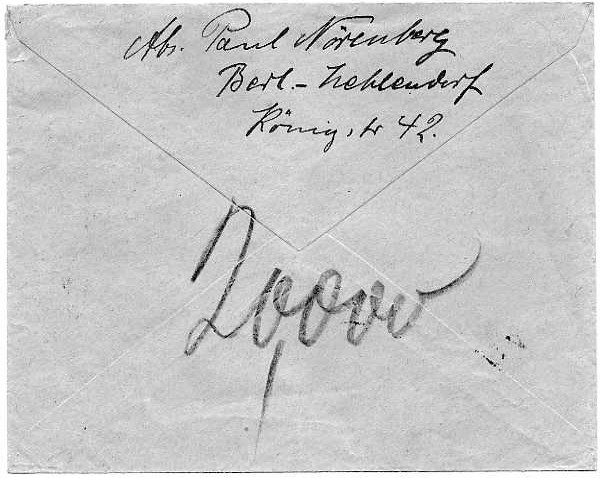 Abs. Paul Nörenberg
Berl.-Zehlendorf
Königstr 42.
20,000